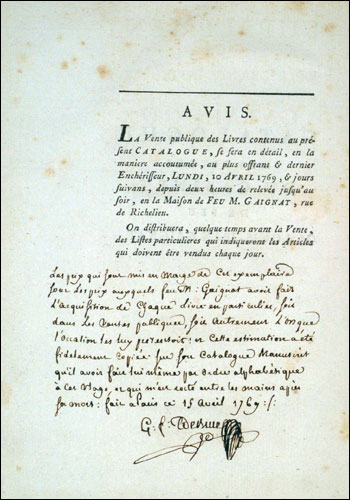 AVIS.
LA Vente publique des Livres contenus au pré-
sent CATALOGUE, se fera en détail, en la
maniere accoutumée, au plus offrant & dernier
Enchérisseur, LUNDI, 10 AVRIL 1769, & jours
suivans, depuis deux heures de relevée jusqu'au
soir, en la Maison de FEU M. GAIGNAT, rue
de Richelieu.
On distribuera, quelque temps avant la Vente,
des Listes particulieres qui indiqueront les Articles
qui doivent être vendus chaque jour.
Les prix qui sont mis en Marge de Cet exemplaire
sont Les prix auxquels feu M. Gaignat avoit fait
L'acquisition de Chaque Livre en particulier, soit
dans Les Ventes publiques, soit autrement Lorsque
l'occasion les luy presentoit; et Cette estimation a été
fidelement Copiée sur son Catalogue Manuscrit
qu'il avoit fait lui même par ordre alphabétique
et qui m'est resté entre les mains après
sa mort: fait a Paris ce 15 Avril 1769
G. f. Debure